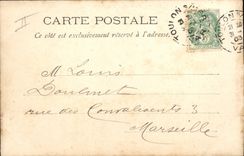 CARTE POSTALE
Ce côté est exclusivement réservé à l'adresse
TOULON
M Louis
Doulmet
rue des Convalescents 3
Marseille